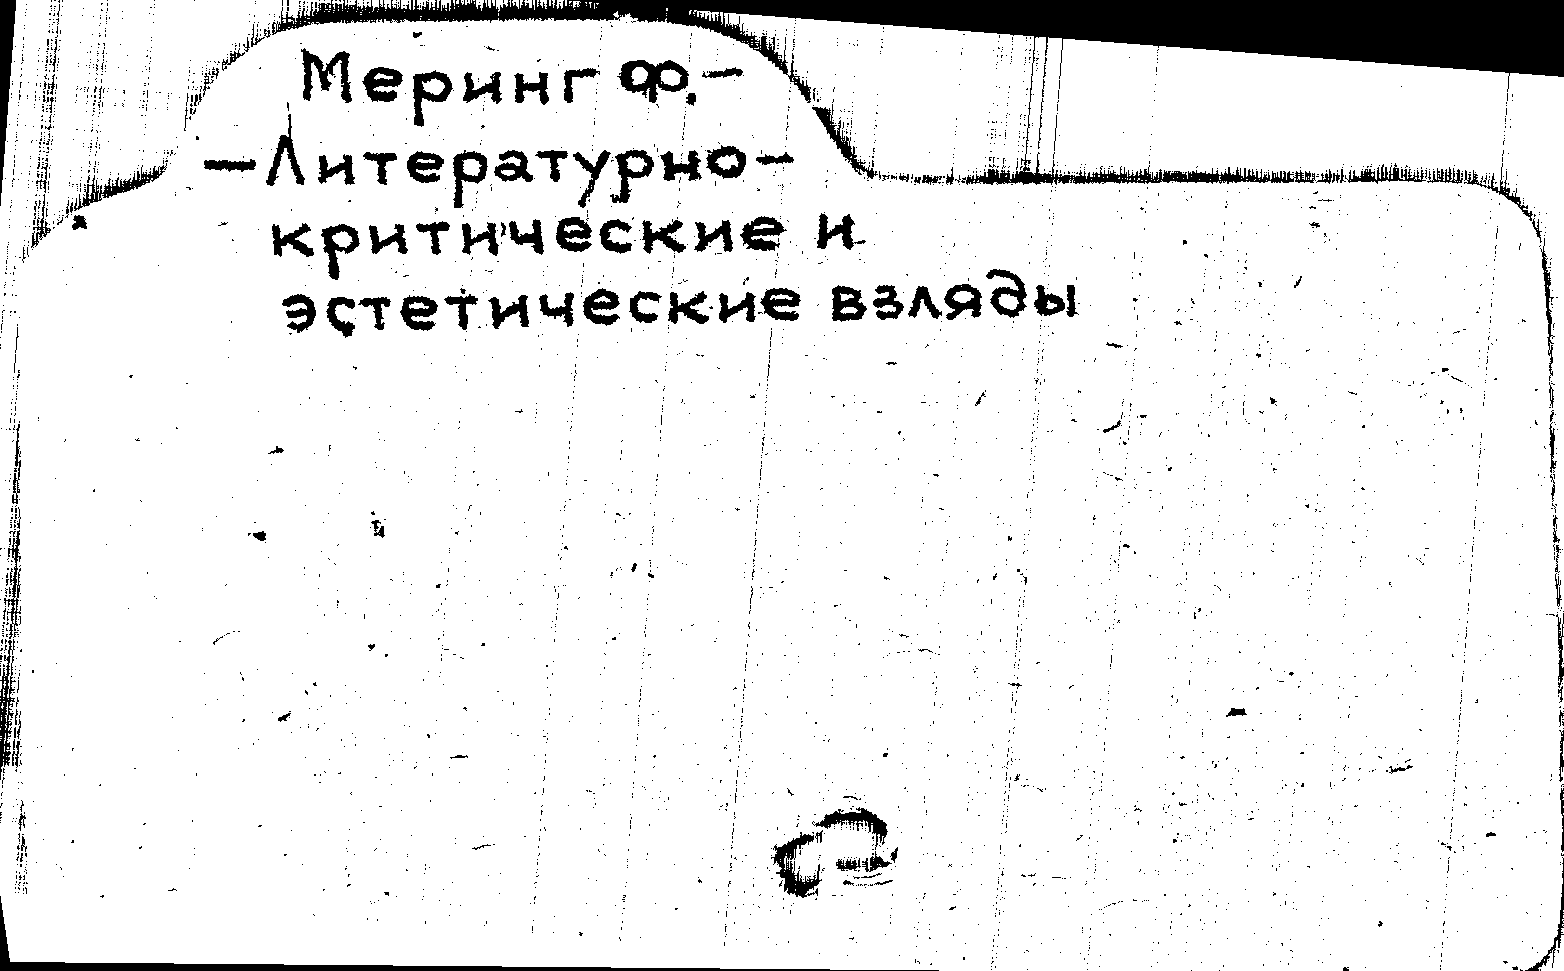 Меринг Ф.-
-Литературно-
критические и
эстетические взляды